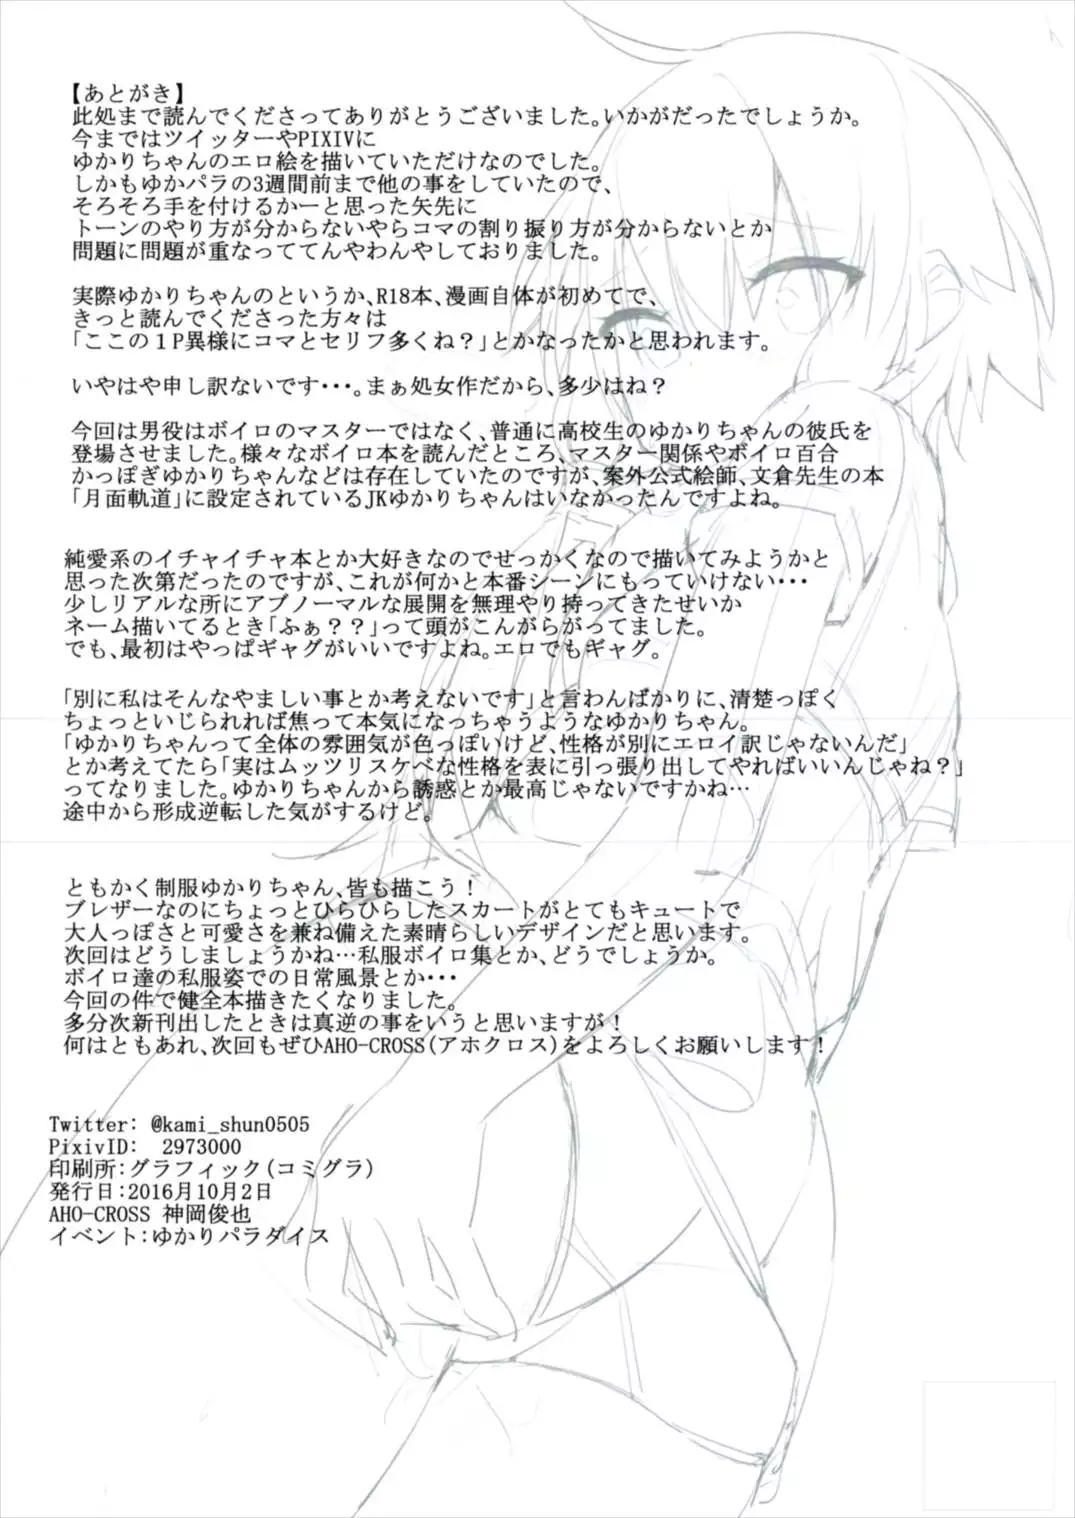 【あとがき】
此処まで読んでくださってありがとうございました。いかがだったでしょうか。
今まではツイッターやPIXIVに
ゆかりちゃんのエロ絵を描いていただけなのでした。
しかもゆかパラの3週間前まで他の事をしていたので、
そろそろ手を付けるかーと思った矢先に
トーンのやり方が分からないやらコマの割り振り方が分からないとか
問題に問題が重なっててんやわんやしておりました。
実際ゆかりちゃんのというか、R18本、漫画自体が初めてで、
きっと読んでくださった方々は
「ここの１P異様にコマとセリフ多くね？」とかなったかと思われます。
いやはや申し訳ないです・・・。まぁ処女作だから、多少はね？
今回は男役はボイロのマスターではなく、普通に高校生のゆかりちゃんの彼氏を
登場させました。様々なボイロ本を読んだところ、マスター関係やボイロ百合
かっぽぎゆかりちゃんなどは存在していたのですが、案外公式絵師、文倉先生の本
「月面軌道」に設定されているJKゆかりちゃんはいなかったんですよね。
純愛系のイチャイチャ本とか大好きなのでせっかくなので描いてみようかと
思った次第だったのですが、これが何かと本番シーンにもっていけない・・・
少しリアルな所にアブノーマルな展開を無理やり持ってきたせいか
ネーム描いてるとき「ふぁ？？」って頭がこんがらがってました。
でも、最初はやっぱギャグがいいですよね。エロでもギャグ。
「別に私はそんなやましい事とか考えないです」と言わんばかりに、清楚っぽく
ちょっといじられれば焦って本気になっちゃうようなゆかりちゃん。
「ゆかりちゃんって全体の雰囲気が色っぽいけど、性格が別にエロイ訳じゃないんだ」
とか考えてたら「実はムッツリスケベな性格を表に引っ張り出してやればいいんじゃね？」
ってなりました。ゆかりちゃんから誘惑とか最高じゃないですかね…
途中から形成逆転した気がするけど。
ともかく制服ゆかりちゃん、皆も描こう！
ブレザーなのにちょっとひらひらしたスカートがとてもキュートで
大人っぽさと可愛さを兼ね備えた素晴らしいデザインだと思います。
次回はどうしましょうかね…私服ボイロ集とか、どうでしょうか。
ボイロ達の私服姿での日常風景とか・・・
今回の件で健全本描きたくなりました。
多分次新刊出したときは真逆の事をいうと思いますが！
何はともあれ、次回もぜひAHO-CROSS(アホクロス)をよろしくお願いします！
Twitter: @kami_shun0505
PixivID: 2973000
印刷所:グラフィック(コミグラ)
発行日:2016月10月2日
AHO-CROSS 神岡俊也
イベント:ゆかりパラダイス